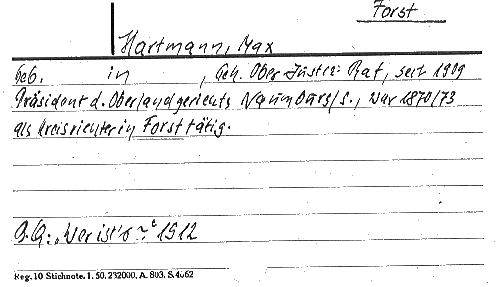 Forst
Hartmann, Max
Geb. in , Geh. Ober Justiz-Rat, seit 1909
Präsident d. Oberlandgerichts Naumburg/S., war 1870/73
als Kreisrichter in Forst tätig.
O.Q.: „Wer ist's?" 1912
Reg. 10 Stichnote. 1. 50. 232000. A. 803. S. 4062